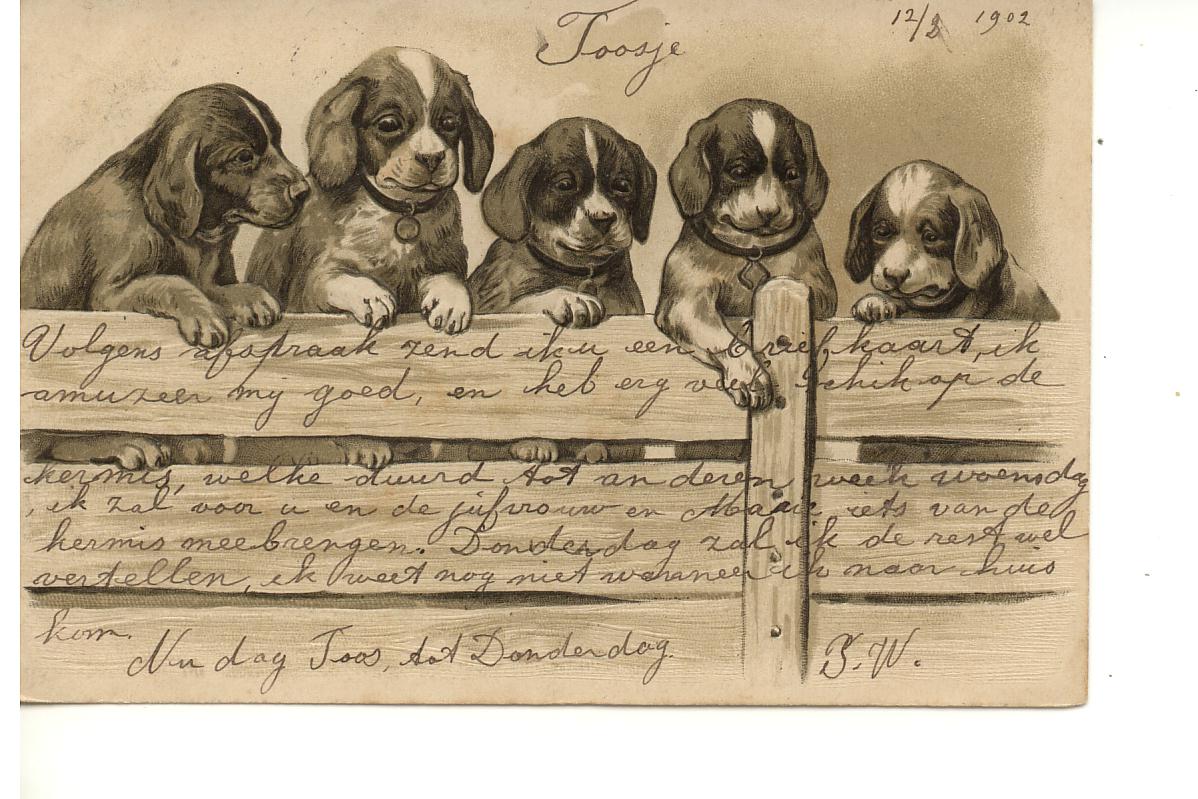 12/8 1902
Toosje
Volgens afspraak zend ik u een briefkaart, ik
amuzeer mij goed, en heb erg veel schik op de
kermis, welke duurd tot anderen week woensdag
, ik zal voor u en de jufvrouw en Marie iets van de
kermis meebrengen. Donderdag zal ik de rest wel
vertellen, ik weet nog niet wanneer ik naar huis
kom.
Nu dag Toos, tot Donderdag.
J. W.